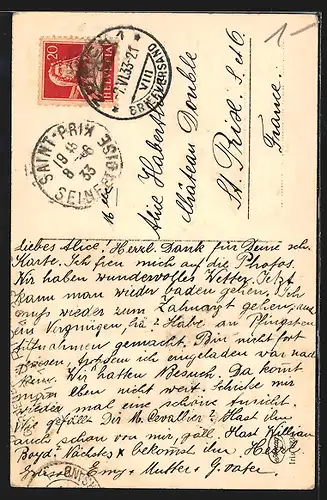 1-
20
HELVETIA
1
7.VI.33-21
VIII
BRIEFVERSAND
SAINT-PRIX
19 45
8 -6
33
SEINE ET OISE
Mlle
Alice Haberst
Château Double
St. Prix. S. et O.
France.
Liebes Alice! Herzl. Dank für Deine sch.
Karte. Ich freu mich auf die Photos.
Wir haben wundervolles Wetter. Jetzt
kann man wieder baden gehen. Ich
muss wieder zum Zahnarzt gehen, auch
ein Vergnügen, hä? Habe an Pfingsten
Aufnahmen gemacht. Bin nicht fort
gewesen, trotzdem ich eingeladen war nach
Wir hatten Besuch. Da kommt
man eben nicht weit. Schicke mir
wieder mal eine schöne Ansicht
Wie gefällt Dir M. Cevallier? Hast ihn
auch schon von mir, gäll. Hast William
Boyd? Nächstes x bekomst ihn. Herzl.
Grüsse Emy + Mutter + G. vater